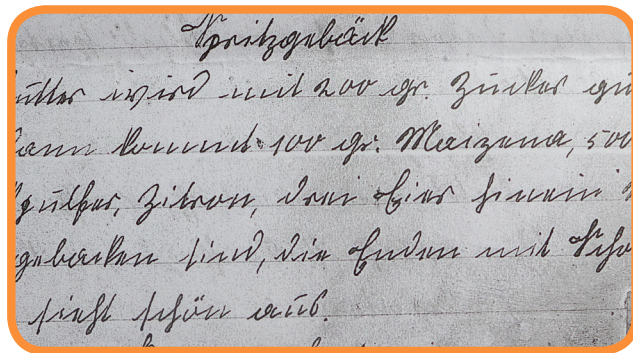 Spritzgebäck
utter wird mit 200 gr. Zucker gu
ann kommt 100 gr. Maizena, 500
gulfer, Zitron, drei Eier hinein
gebacken sind, die Enden mit Scho
sieht schön aus.